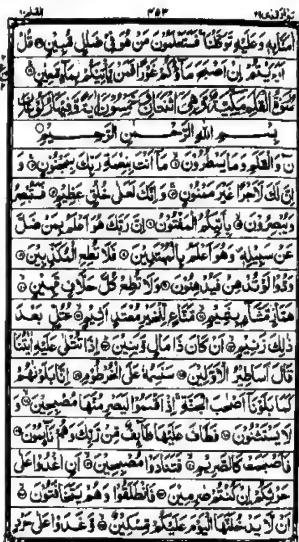 تبٰرك الذى ٢٩ ٤٥٣ القلم ٦٨
اٰمَنَّا بِهٖ وَعَلَيْهِ تَوَكَّلْنَا فَسَتَعْلَمُوْنَ مَنْ هُوَ فِيْ ضَلٰلٍ مُّبِيْنٍ قُلْ
اَرَءَيْتُمْ اِنْ اَصْبَحَ مَآؤُكُمْ غَوْرًا فَمَنْ يَّاْتِيْكُمْ بِمَآءٍ مَّعِيْنٍ
سُوْرَةُ الْقَلَمِ مَكِّيَّةٌ وَّهِيَ اثْنَتَانِ وَخَمْسُوْنَ اٰيَةً وَّفِيْهَا رُكُوْعَانِ
بِسْمِ اللّٰهِ الرَّحْمٰنِ الرَّحِيْمِ
نٓ وَالْقَلَمِ وَمَا يَسْطُرُوْنَ مَآ اَنْتَ بِنِعْمَةِ رَبِّكَ بِمَجْنُوْنٍ وَ
اِنَّ لَكَ لَاَجْرًا غَيْرَ مَمْنُوْنٍ وَاِنَّكَ لَعَلٰى خُلُقٍ عَظِيْمٍ فَسَتُبْصِرُ
وَيُبْصِرُوْنَ بِاَيِّكُمُ الْمَفْتُوْنُ اِنَّ رَبَّكَ هُوَ اَعْلَمُ بِمَنْ ضَلَّ
عَنْ سَبِيْلِهٖ وَهُوَ اَعْلَمُ بِالْمُهْتَدِيْنَ فَلَا تُطِعِ الْمُكَذِّبِيْنَ
وَدُّوْا لَوْ تُدْهِنُ فَيُدْهِنُوْنَ وَلَا تُطِعْ كُلَّ حَلَّافٍ مَّهِيْنٍ
هَمَّازٍ مَّشَّآءٍ بِنَمِيْمٍ مَّنَّاعٍ لِّلْخَيْرِ مُعْتَدٍ اَثِيْمٍ عُتُلٍّ بَعْدَ
ذٰلِكَ زَنِيْمٍ اَنْ كَانَ ذَا مَالٍ وَّبَنِيْنَ اِذَا تُتْلٰى عَلَيْهِ اٰيٰتُنَا
قَالَ اَسَاطِيْرُ الْاَوَّلِيْنَ سَنَسِمُهٗ عَلَى الْخُرْطُوْمِ اِنَّا بَلَوْنٰهُمْ
كَمَا بَلَوْنَآ اَصْحٰبَ الْجَنَّةِ اِذْ اَقْسَمُوْا لَيَصْرِمُنَّهَا مُصْبِحِيْنَ وَ
لَا يَسْتَثْنُوْنَ فَطَافَ عَلَيْهَا طَآئِفٌ مِّنْ رَّبِّكَ وَهُمْ نَآئِمُوْنَ
فَاَصْبَحَتْ كَالصَّرِيْمِ فَتَنَادَوْا مُصْبِحِيْنَ اَنِ اغْدُوْا عَلٰى
حَرْثِكُمْ اِنْ كُنْتُمْ صٰرِمِيْنَ فَانْطَلَقُوْا وَهُمْ يَتَخَافَتُوْنَ
اَنْ لَّا يَدْخُلَنَّهَا الْيَوْمَ عَلَيْكُمْ مِّسْكِيْنٌ وَّغَدَوْا عَلٰى حَرْدٍ